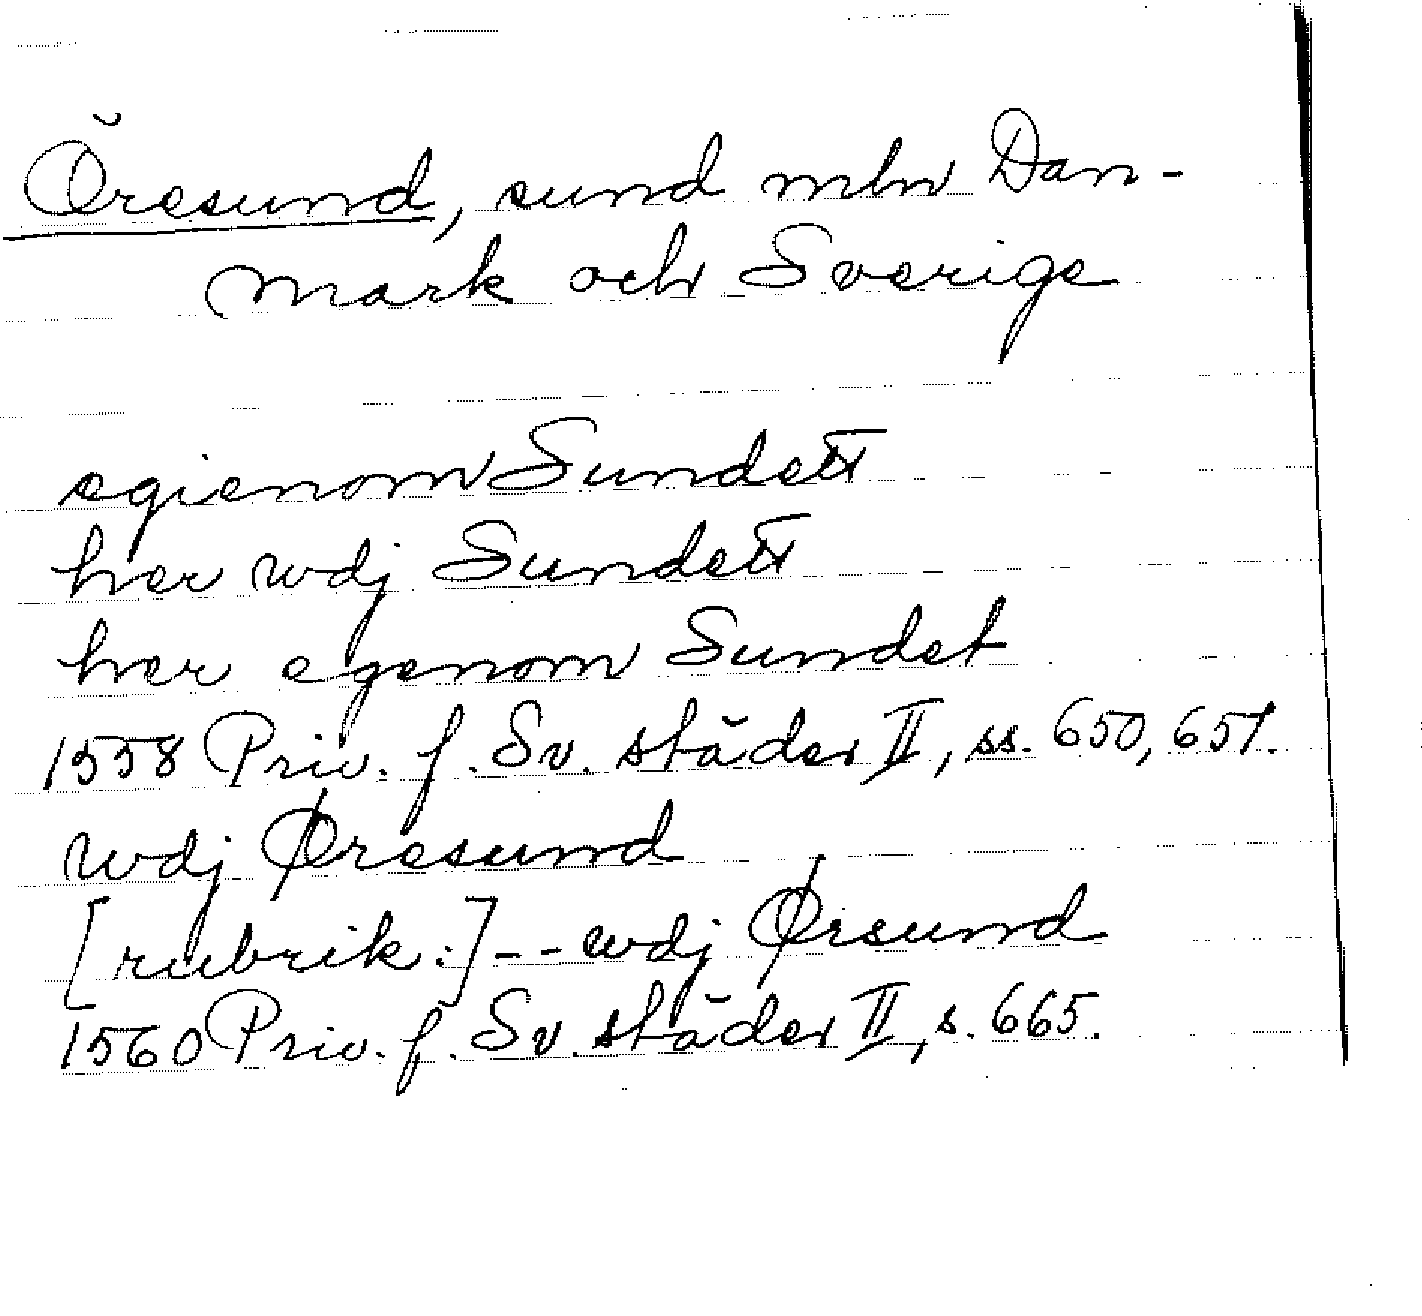 Öresund, sund mln Dan-
mark och Sverige
egienom Sundett
her wdj Sundett
her egenom Sundet
1558 Priv. f. Sv. städer II, ss. 650, 651.
wdj Øresund
[rubrik:]-- wdj Ørsund
1560 Priv. f. Sv. städer II, s. 665.